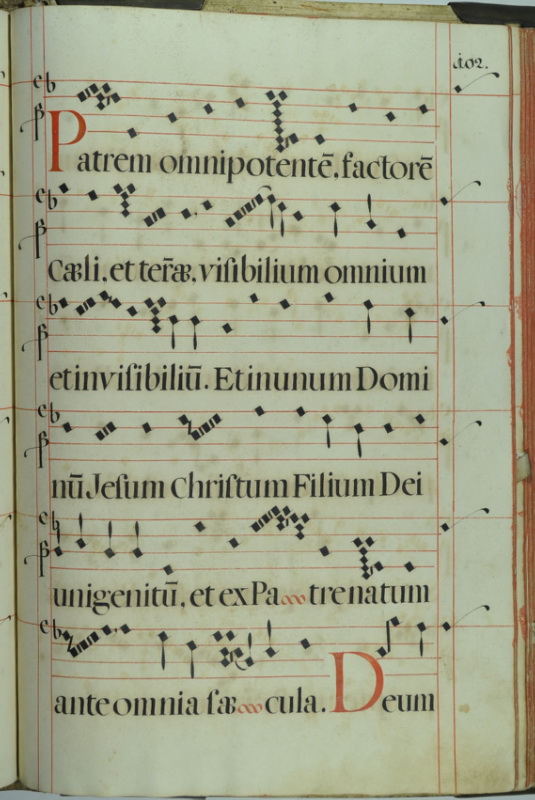 102.
Patrem omnipotentē. factorē
Cæli. et ter̄æ. viſibilium omnium
et inviſibiliū. Et in unum Domi
nū Jeſum Chriſtum Filium Dei
unigenitū. et ex Pa tre natum
ante omnia ſæ cula. Deum